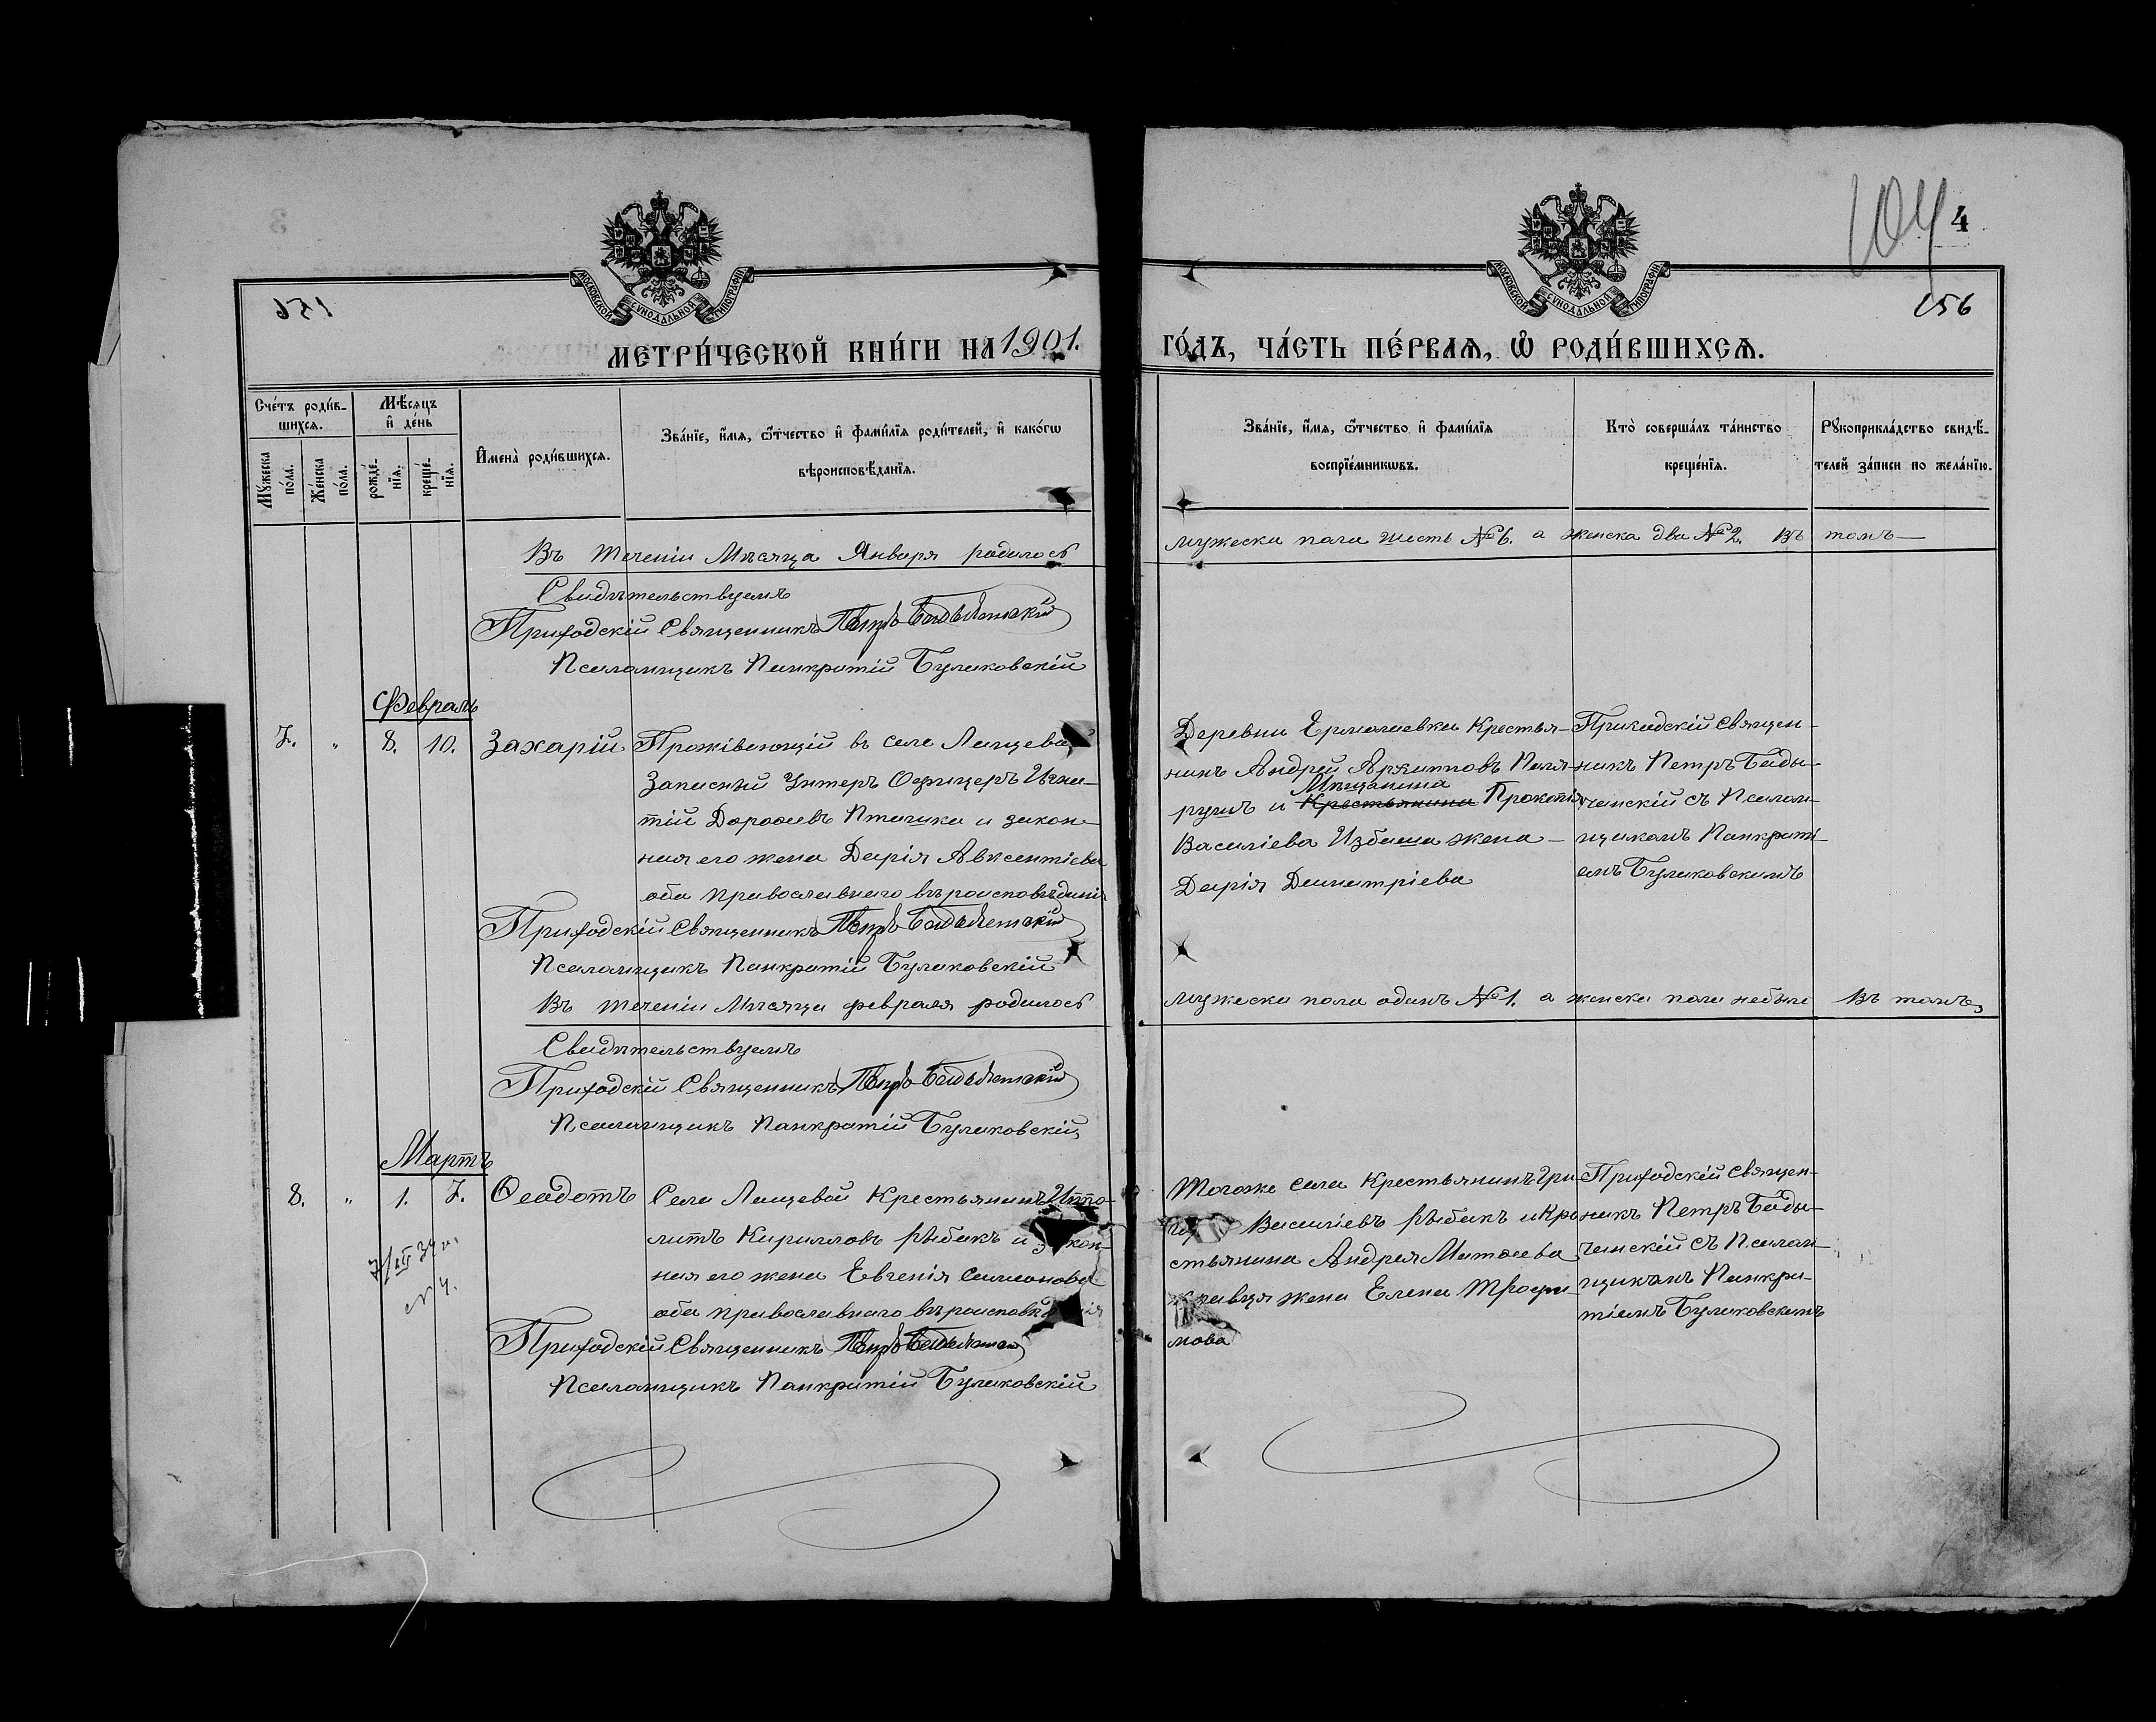 104 4
156
156
МОСКОВСКОЙ СУНОДАЛЬНОЙ ТИПОГРАФІИ
МОСКОВСКОЙ СУНОДАЛЬНОЙ ТИПОГРАФІИ
МЕТРИ́ЧЕСКОЙ КНИ́ГИ НА 1901. ГО́ДЪ, ЧА́СТЬ ПЕ́РВАѦ, Ѡ҆ РОДИ́ВШИХСѦ.
Сче́тъ роди́в-
шихсѧ.
Мꙋжеска по́ла.
Же́нска по́ла.
Мѣ́сѧцъ и҆ де́нь
рожде́нїѧ.
креще́нїѧ.
И҆мена̀ роди́вшихсѧ.
Зва́нїе, и҆́мѧ, ѻ҆́тчество и҆ фами́лїѧ роди́телей, и҆ како́гѡ
вѣроисповѣ́данїѧ.
Зва́нїе, и҆́мѧ, ѻ҆́тчество и҆ фами́лїѧ
воспрїе́мникѡвъ.
Кто̀ соверша́лъ та́инство
креще́нїѧ.
Рꙋкоприкла́дство свидѣ́-
телей за́писи по жела́нїю.
Въ теченіи Мѣсяца Января родилось мужеска пола шесть №6. а женска два №2. Въ томъ
Свидѣтельствуемъ
Приходскій Священникъ Петръ
Псаломщикъ Панкратій Булаковскій
Февраль
7. " 8. 10. Захарій Проживающій въ селе Лащевой
Запасный Унтеръ Офицеръ Игна-
тій Дорофеевъ Пташка и закон-
ная его жена Дарія Авксентіева
оба православнаго вѣроисповѣданія
Деревни Ермолаевки Крестья-
нинъ Андрей Архиповъ
и Мѣщанина Крестьянина Прокопія
Василіева Избаша жена
Дарія Димитріева
Приходскій Священ-
никъ Петръ Бады-
ченскій съ Псалом-
щикомъ Панкраті-
емъ Булаковскимъ
Приходскій Священникъ Петръ
Псаломщикъ Панкратій Булаковскій
Въ теченіи Мѣсяца февраля родилось мужеска пола одинъ №1. а женска пола небыло Въ томъ
Свидѣтельствуемъ
Приходскій Священникъ Петръ
Псаломщикъ Панкратій Булаковскій
Мартъ
8. " 1. 7. Ѳеодотъ Села Лащевой Крестьянинъ Иппо-
литъ Кирилловъ Рыбакъ и закон-
ная его жена Евгенія Симеонова
оба православнаго
Тогоже села Крестьянинъ Гри
Василіевъ Рыбакъ и Кре
стьянина Андрея Матѳеева
жена Елена Трофи-
мова
Приходскій Священ-
никъ Петръ Бады-
ченскій съ Псалом-
щикомъ Панкра-
тіемъ Булаковскимъ
№ 4.
Приходскій Священникъ Петръ
Псаломщикъ Панкратій Булаковскій